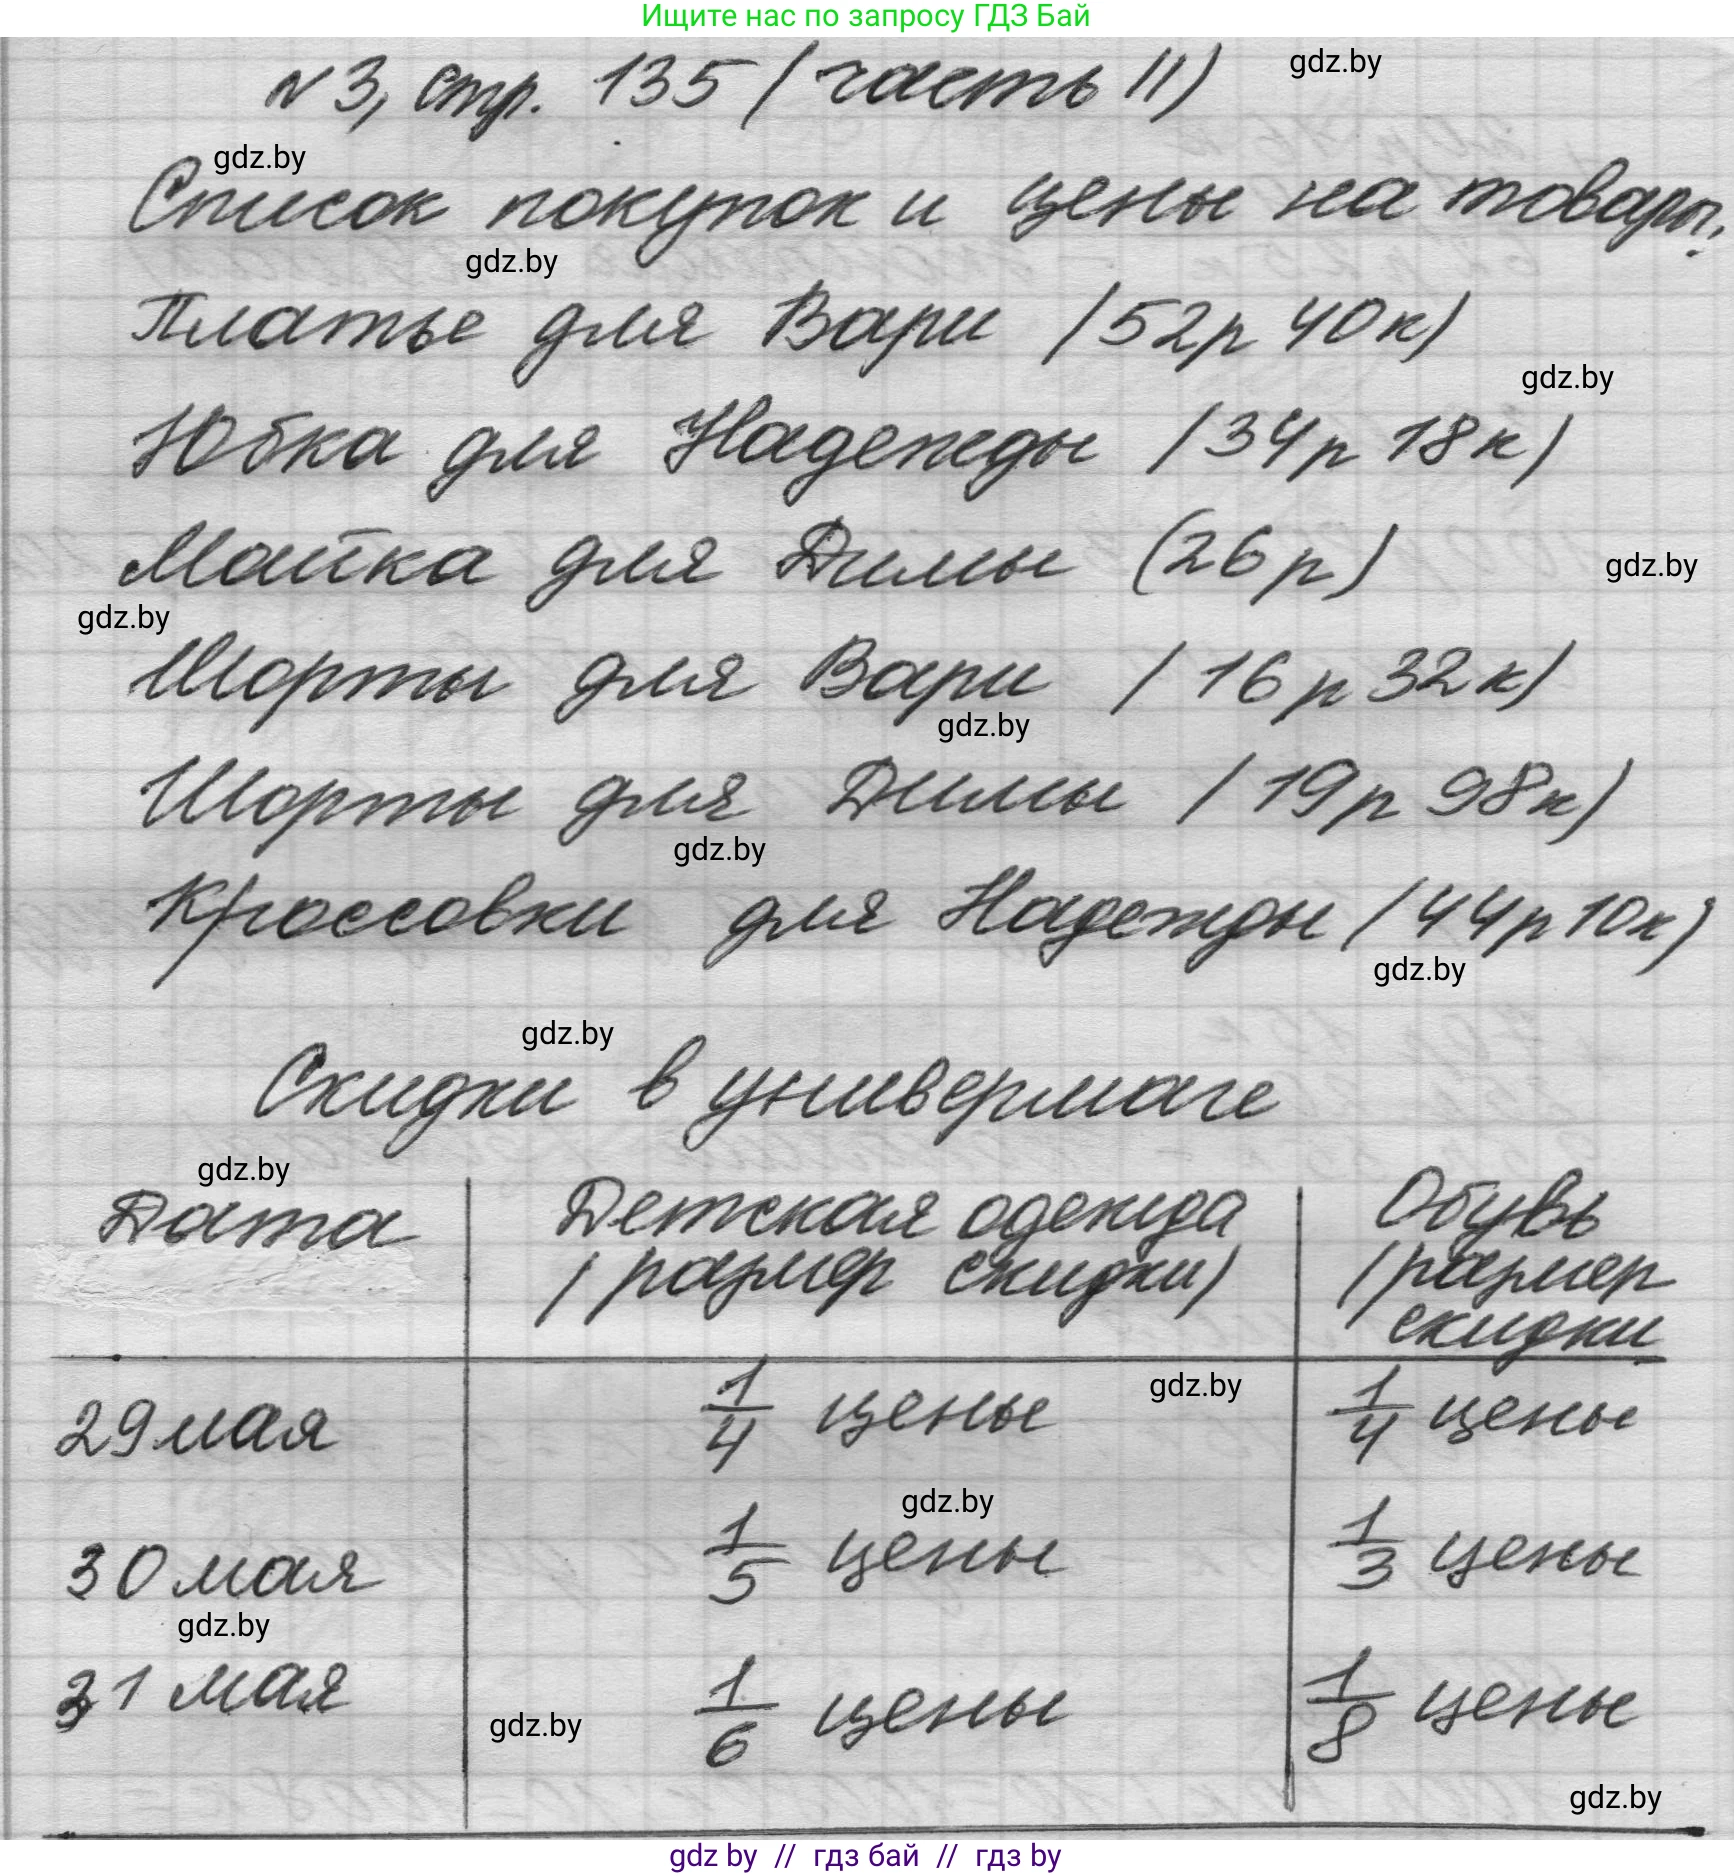 Ищите нас по запросу ГДЗ Бай
N3, стр. 135 (часть II)
gdz.by
gdz.by
Список покупок и цены на товары.
gdz.by
Платье для Вари (52р 40к)
gdz.by
Юбка для Надежды (34р 18к)
Майка для Димы (26р)
gdz.by
gdz.by
Шорты для Вари (16р 32к)
gdz.by
Шорты для Димы (19р 98к)
gdz.by
Кроссовки для Надежды (44р 10к)
gdz.by
gdz.by
Скидки в универмаге
gdz.by
Дата Детская одежда Обувь
(размер скидки) (размер
скидки
29 мая 1/4 цены gdz.by 1/4 цены
gdz.by
30 мая 1/5 цены 1/3 цены
gdz.by
31 мая 1/6 цены 1/8 цены
gdz.by
gdz.by
gdz by // гдз бай // гдз by